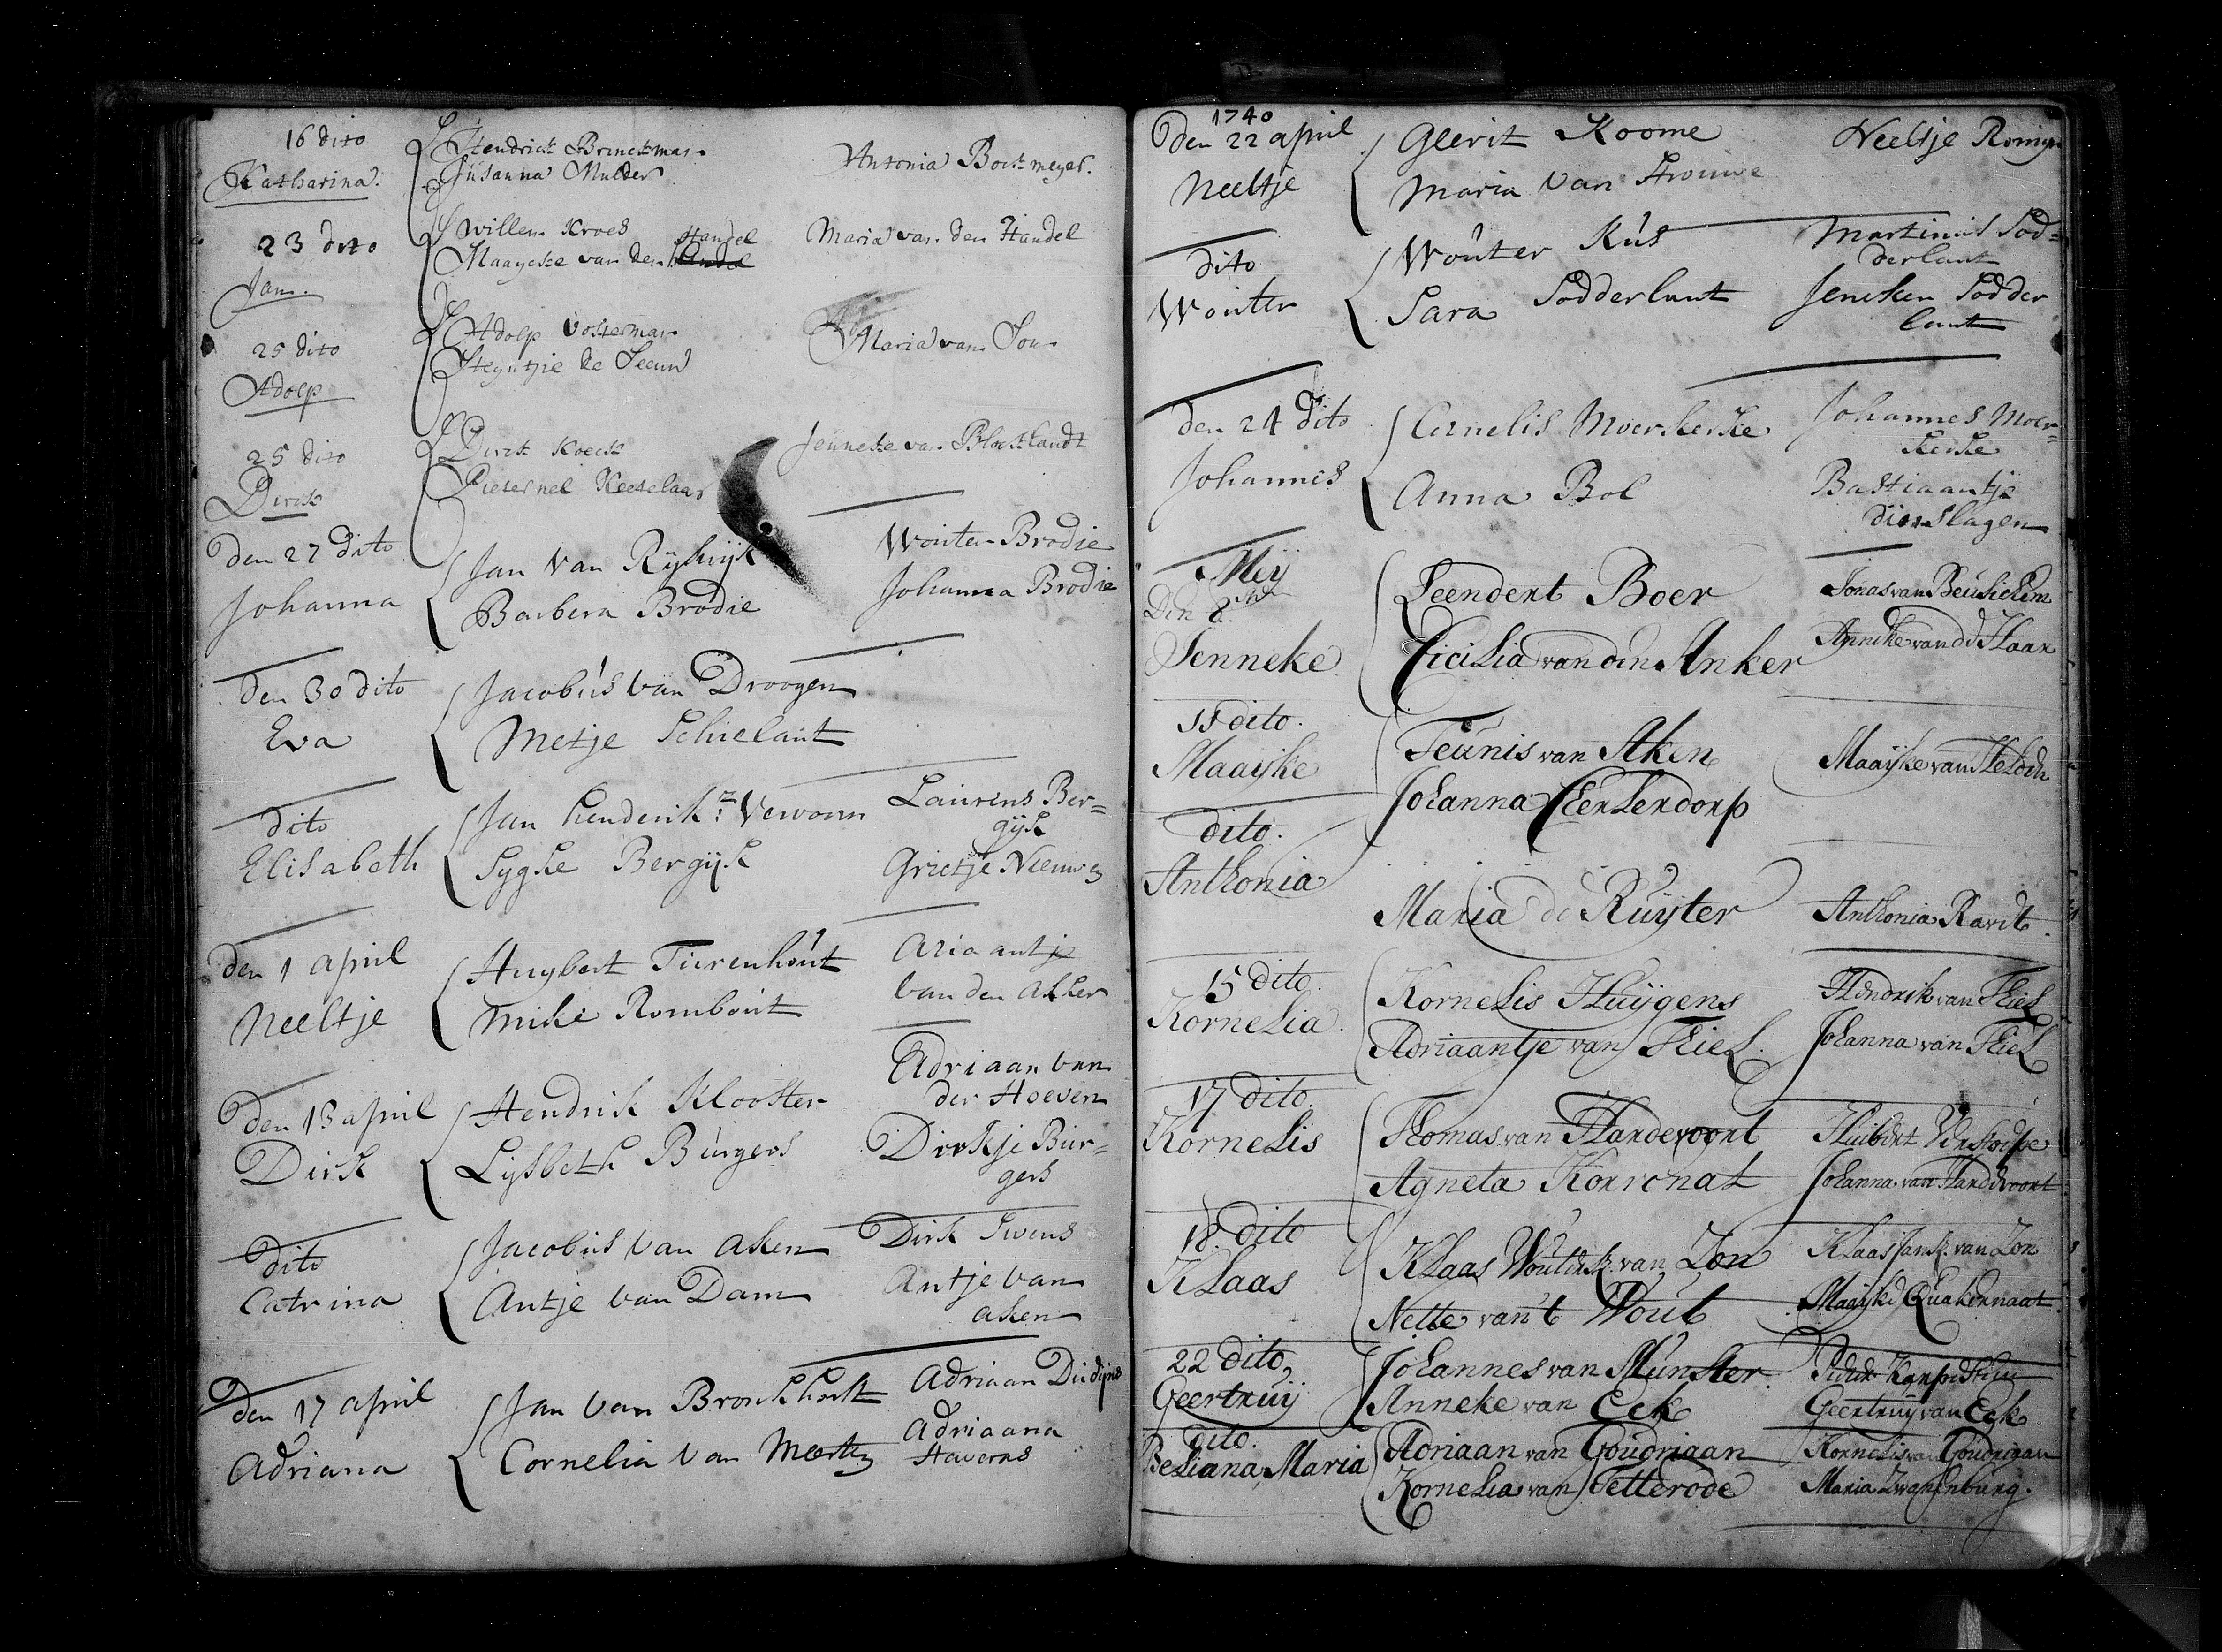 16 dito
Katharina.
Hendrick Brinckman
Susanna Mulder
Antonia Bockmeyer.
23 dito
Jan.
Willem Kroes
Maaycke van den Handel
Maria van den Handel
25 dito
Adolp
Adolp Vosterman
Steyntjie de Leeuw
Maria van Son
25 dito
Dirck
Dirck Kock
Pieternel Keeselaar
Jenneke van Blocklandt
Den 27 dito
Johanna
Jan van Ryhuyk
Barbera Brodie
Wouter Brodie
Johanna Brodie
den 30 dito
Eva
Jacobus van Droogen
Metje Schielant
dito
Elisabeth
Jan Henderik Vervoorn
Sygke Bergijk
Laurens Ber=
gijk
Grietje
den 1 april
Neeltje
Huybert Turenhout
Mike Rombout
Ariaantje
van den Akker
Den 13 april
Dirk
Hendrik Klooster
Lysbeth Burgers
Adriaan van
der Hoeven
Dirkje Bur=
gers
dito
Catrina
Jacobus van Aken
Antje van Dam
Dirk Swens
Antje van
Aken
Den 17 april
Adriana
Jan van Bronkhorst
Cornelia van
Adriaan
Adriaana
Haverns
1740
Den 22 april
Neeltje
Geerit Koome
Maria van
Neeltje
dito
Wouter
Wouter Kus
Sara Sodderlant
Martinus Sod=
derlant
Jeneken Sodder
lant
den 24 dito
Johannes
Cornelis Moerkerke
Anna Bol
Johannes Moer=
kerke
Bastiaantje
dierslagen
Meij
Den 8
Jenneke
Leendert Boer
Cicilia van den Anker
Jonas van Beusichem
Anneke van de Haar
11 dito.
Maayke
Teunis van Aken
Johanna Heerkendorp
Maayke van
dito.
Anthonia
Maria de Ruyter
Anthonia Ravit.
15 dito.
Kornelia.
Kornelis Huygens
Adriaantje van Thiel.
Hendrik van Thiel
Johanna van Thiel
17 dito.
Kornelis
Thomas van Hardevoort
Agneta Korronat
Huibert
Johanna van Hardevoort
18 dito
Klaas
Klaas Woutersz. van Zon
Nette van 't Wout
Klaas Jansz. van Zon
Maayke Quakernaat.
22 dito,
Geertruij
Johannes van Munster.
Anneke van Eck
Geertruy van Eck
dito.
Beliana Maria
Adriaan van Goudriaan
Kornelia van Tetterode
Kornelis van Goudriaan
Maria Zwanenburg.